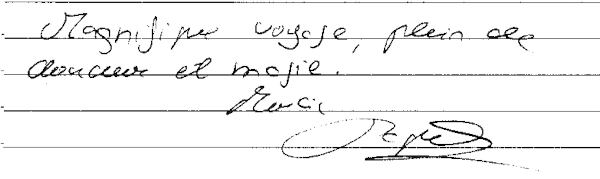 Magnifique voyage, plein de
douceur et magie.
Merci